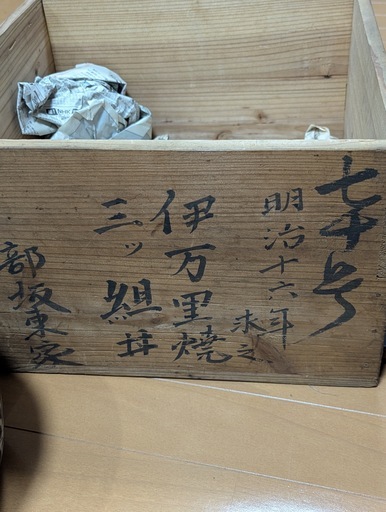 七十号
明治十六年
求之
伊万里焼
三ッ組丼
部坂東家